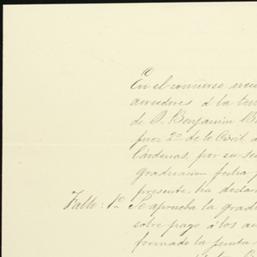 En el concurso
acreedores á la
de D. Benjamin
Juez 2º de lo Civil
Cárdenas, por su
graduacion fecha
presente, ha declar
Fallo: 1º Se aprueba la grad
sobre pago á los
formado la Junta